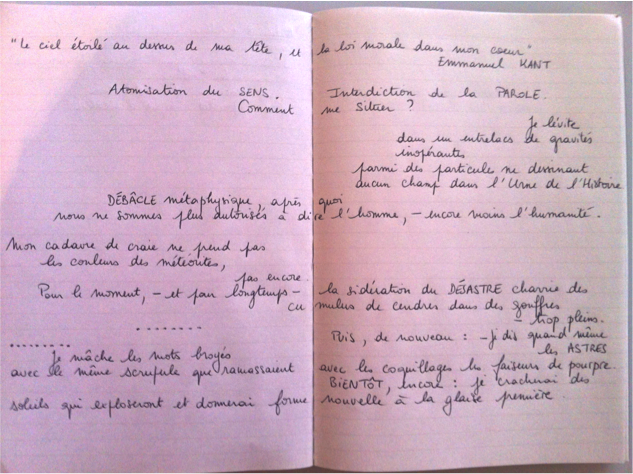 "Le ciel étoilé au dessus de ma tête, et la loi morale dans mon coeur"
Emmanuel KANT
Atomisation du SENS. Interdiction de la PAROLE.
Comment me situer ?
Je lévite
dans un entrelacs de gravités
inopérantes
parmi des particule ne dessinant
aucun champ dans l'Urne de l'Histoire
DÉBÂCLE métaphysique, après quoi
nous ne sommes plus autorisés à dire l'homme, – encore moins l'humanité.
Mon cadavre de craie ne prend pas
les couleurs des météorites,
pas encore.
Pour le moment, – et pour longtemps – la sidération du DÉSASTRE charrie des
cumulus de cendres dans des gouffres
– trop pleins.
........
Puis, de nouveau : – j'dis quand même
.........
les ASTRES
Je mâche les mots broyés
avec le même scrupule que ramassaient avec les coquillages les faiseurs de pourpre.
BIENTÔT, encore : je cracherai des
soleils qui exploseront et donnerai forme nouvelle à la glaise première.